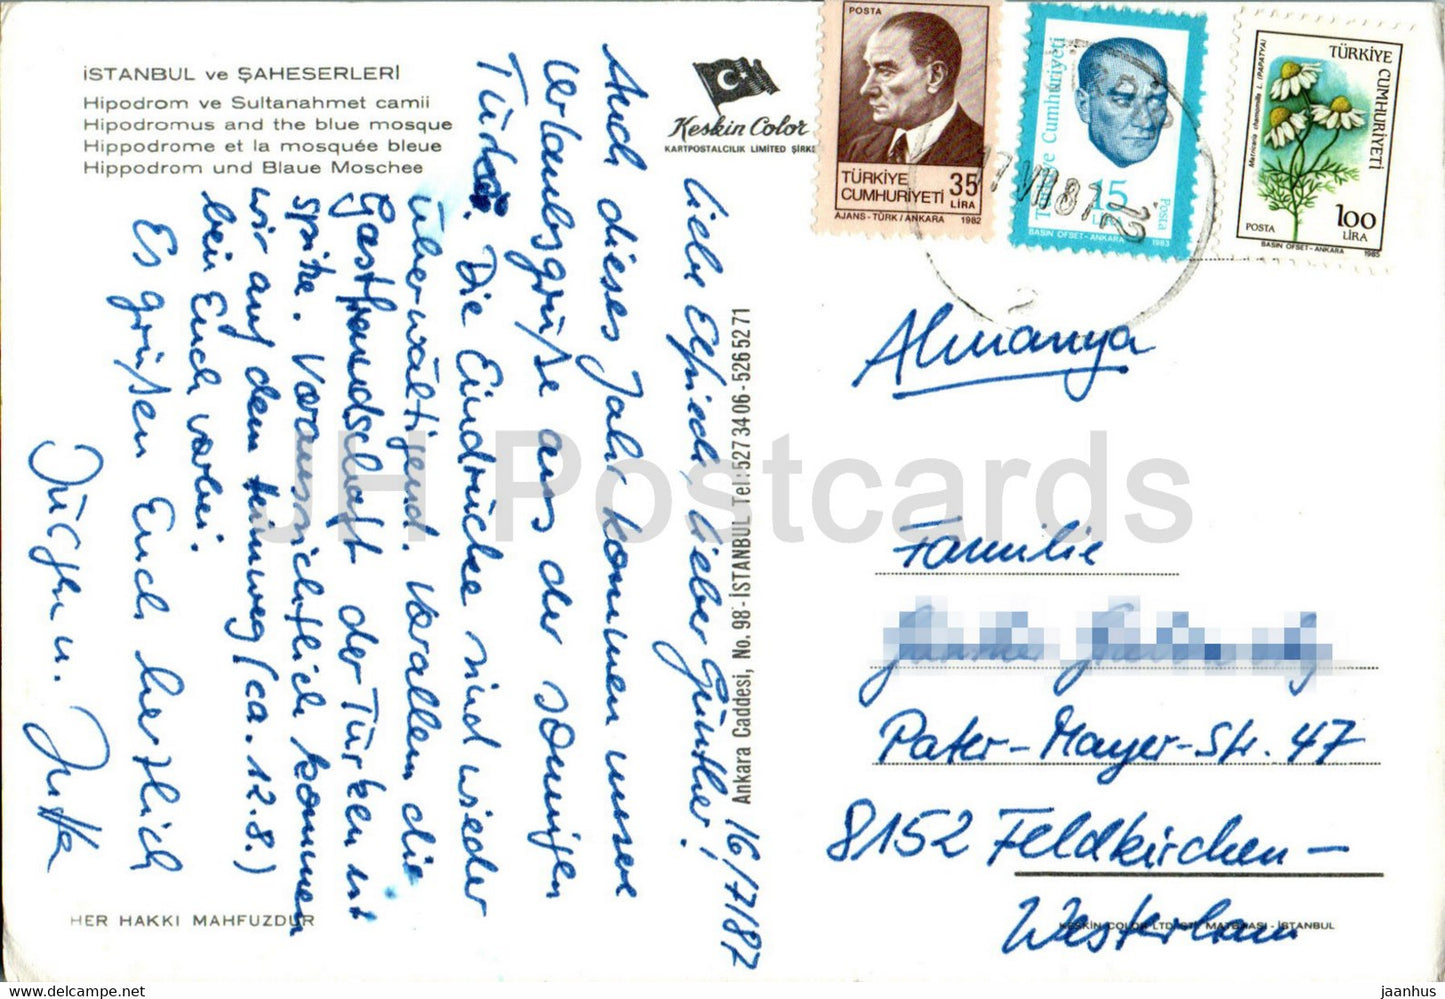 İSTANBUL ve ŞAHESERLERİ
Hipodrom ve Sultanahmet camii
Hipodromus and the blue mosque
Hippodrome et la mosquée bleue
Hippodrom und Blaue Moschee
Keskin Color
KARTPOSTALCILIK LIMITED ŞİRK
POSTA
TÜRKİYE
CUMHURİYETİ
35
LİRA
AJANS-TÜRK/ANKARA 1982
Türkiye Cumhuriyeti
15
LİRA
Posta
BASIN OFSET-ANKARA 1983
TÜRKİYE
CUMHURİYETİ
Matricaria chamomilla L. (PAPATYA)
POSTA
100
LİRA
BASIN OFSET-ANKARA 1985
17 VII 87 12
16/7/87
Liebe Elfriede, lieber Günther!
Auch dieses Jahr kommen unsere
Urlaubsgrüße aus der sonnigen
Türkei. Die Eindrücke sind wieder
überwältigend. Vorallem die
Gastfreundschaft der Türken ist
spitze. Voraussichtlich kommen
wir auf dem Heimweg (ca. 12.8.)
bei Euch vorbei.
Es grüßen Euch herzlich
Jürgen u. Jutta
Ankara Caddesi, No. 98-İSTANBUL Tel: 527 34 06 - 526 52 71
Almanya
Familie
Pater-Mayer-Str. 47
8152 Feldkirchen-
Westerham
HER HAKKI MAHFUZDUR
KESKİN COLOR LTD. ŞTİ. MATBAASI - İSTANBUL
JH Postcards
www.delcampe.net
jaanhus